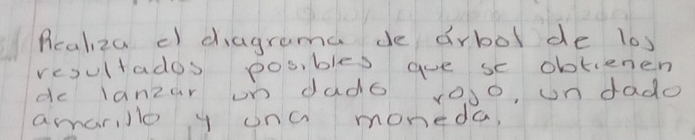 Realiza el diagrama de árbol de los
resultados posibles que se obtienen
de lanzar un dado rojo, un dado
amarillo y una moneda.